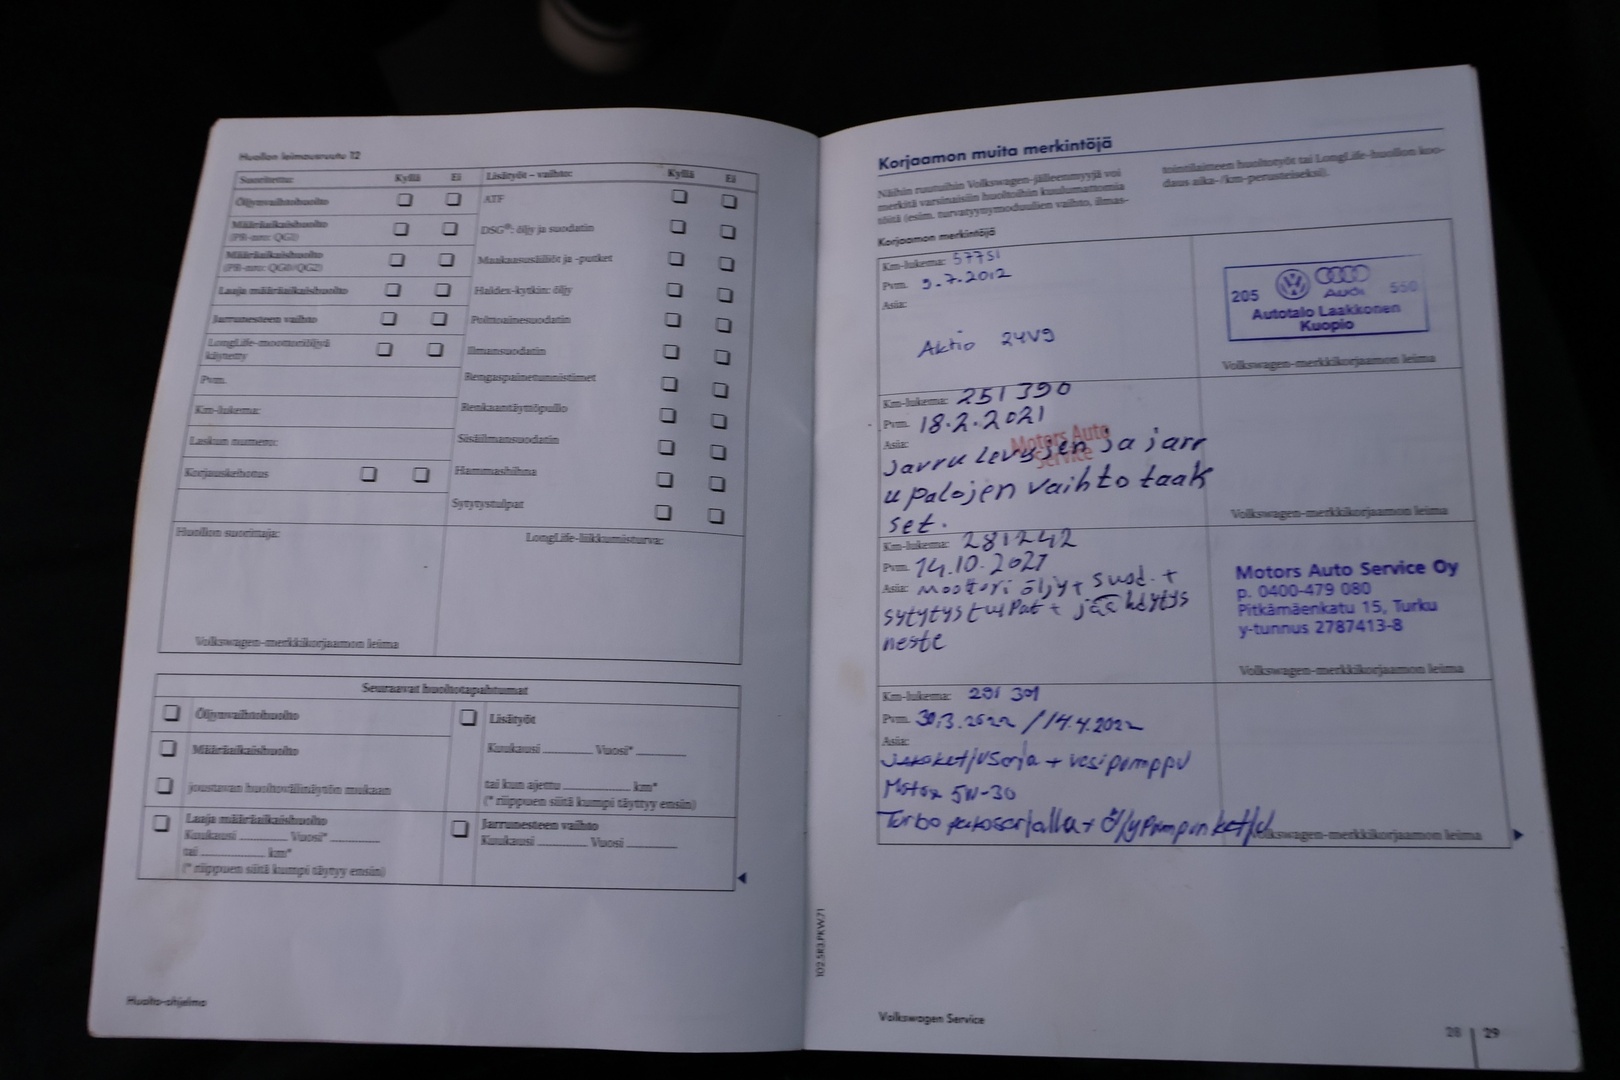 Huollon leimausruutu 12
Suoritettu: Kyllä Ei
Öljynvaihtohuolto
Määräaikaishuolto
(PR-nro: QG1)
Määräaikaishuolto
(PR-nro: QG0/QG2)
Laaja määräaikaishuolto
Jarrunesteen vaihto
LongLife-moottoriöljyä
käytetty
Pvm.
Km-lukema:
Laskun numero:
Korjauskehotus
Lisätyöt – vaihto: Kyllä Ei
ATF
DSG®: öljy ja suodatin
Maakaasusäiliöt ja -putket
Haldex-kytkin: öljy
Polttoainesuodatin
Ilmansuodatin
Rengaspainetunnistimet
Renkaantäyttöpullo
Sisäilmansuodatin
Hammashihna
Sytytystulpat
Huollon suorittaja:
LongLife-liikkumisturva:
Volkswagen-merkkikorjaamon leima
Seuraavat huoltotapahtumat
Öljynvaihtohuolto
Määräaikaishuolto
joustavan huoltovälinäytön mukaan
Laaja määräaikaishuolto
Kuukausi Vuosi*
tai km*
(* riippuen siitä kumpi täytyy ensin)
Lisätyöt
Kuukausi Vuosi*
tai kun ajettu km*
(* riippuen siitä kumpi täyttyy ensin)
Jarrunesteen vaihto
Kuukausi Vuosi
Huolto-ohjelma
102.5R3.PKW.71
Korjaamon muita merkintöjä
Näihin ruutuihin Volkswagen-jälleenmyyjä voi
merkitä varsinaisiin huoltoihin kuulumattomia
töitä (esim. turvatyynymoduulien vaihto, ilmas-
tointilaitteen huoltotyöt tai LongLife-huollon koo-
daus aika-/km-perusteiseksi).
Korjaamon merkintöjä
Km-lukema: 57751
Pvm. 9.7.2012
Asia:
Aktio 24V9
205 Audi 550
Autotalo Laakkonen
Kuopio
Volkswagen-merkkikorjaamon leima
Km-lukema: 251390
Pvm. 18.2.2021
Asia:
Motors Auto
Service
Jarru levyjen ja jarr
u palojen vaihto taak
set.
Volkswagen-merkkikorjaamon leima
Km-lukema: 281242
Pvm. 14.10.2021
Asia: moottori öljy + suod. +
sytytystulpat + jäähdytys
neste
Motors Auto Service Oy
p. 0400-479 080
Pitkämäenkatu 15, Turku
y-tunnus 2787413-8
Volkswagen-merkkikorjaamon leima
Km-lukema: 291 301
Pvm. 30.3.2022 / 14.4.2022
Asia:
Jakoketjusarja + vesipumppu
Motox 5W-30
Turbo pakosarjalla + öljypumpun ketju
Volkswagen-merkkikorjaamon leima
Volkswagen Service
28 29